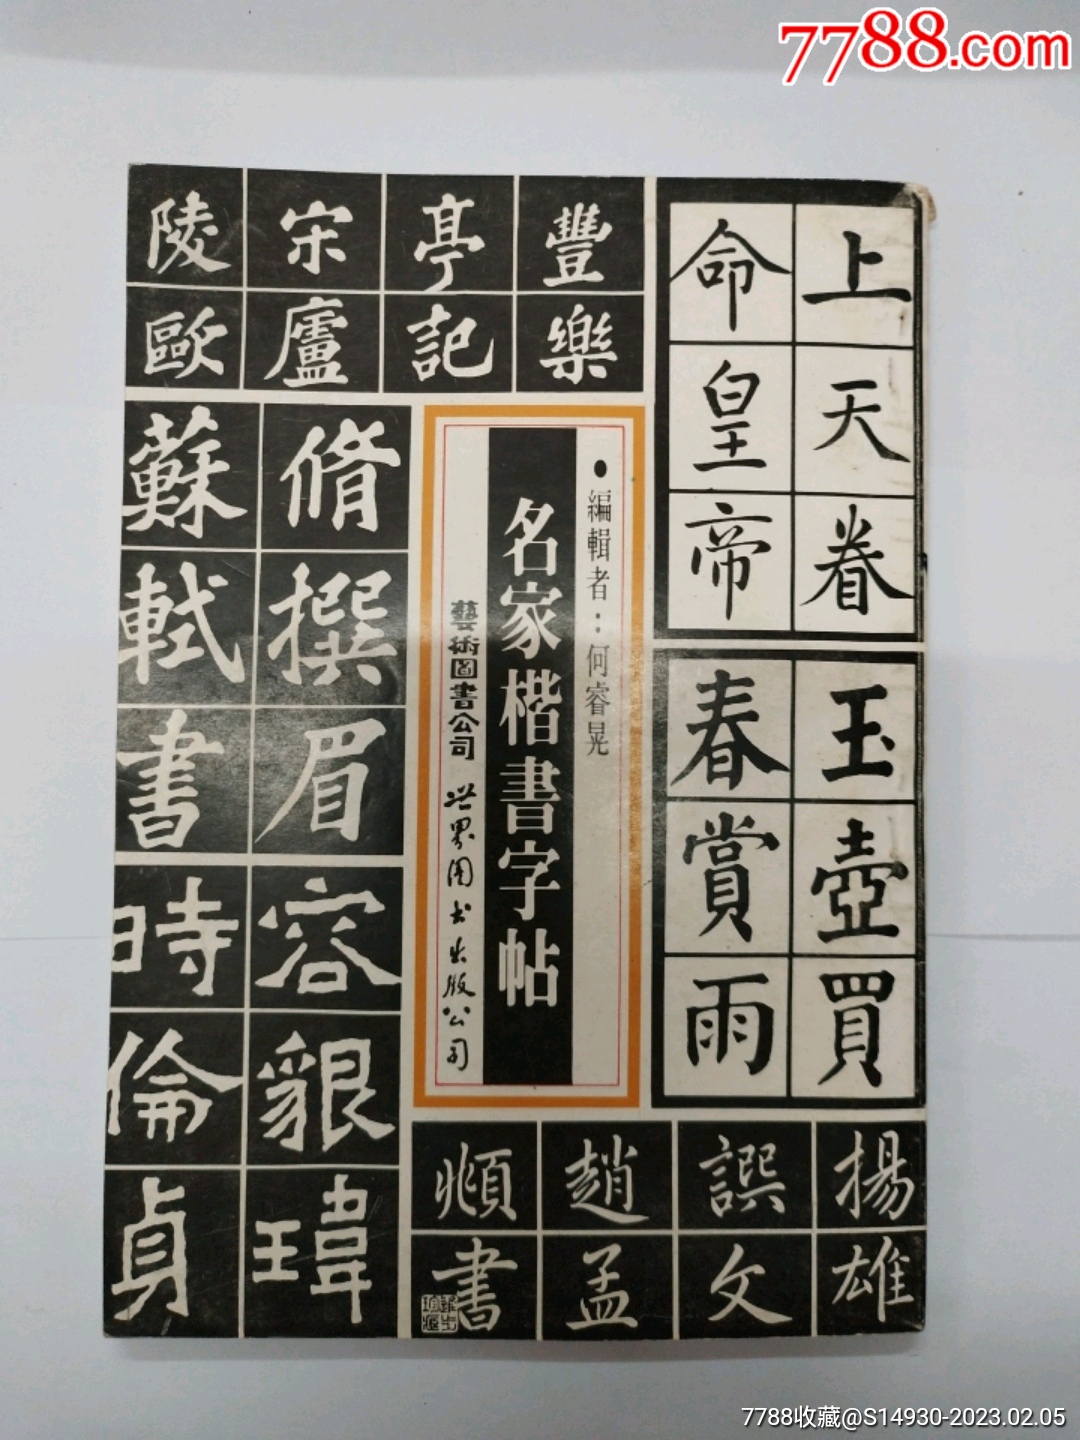 7788.com
上天眷
命皇帝
玉壺買
春賞雨
豐樂
亭記
宋廬
陵歐
• 編輯者：何睿晃
名家楷書字帖
藝術圖書公司 世界图书出版公司
脩撰眉
蘇軾書
容貇瑋
時倫貞
揚雄
譔文
趙孟
頫書
7788收藏@S14930-2023.02.05